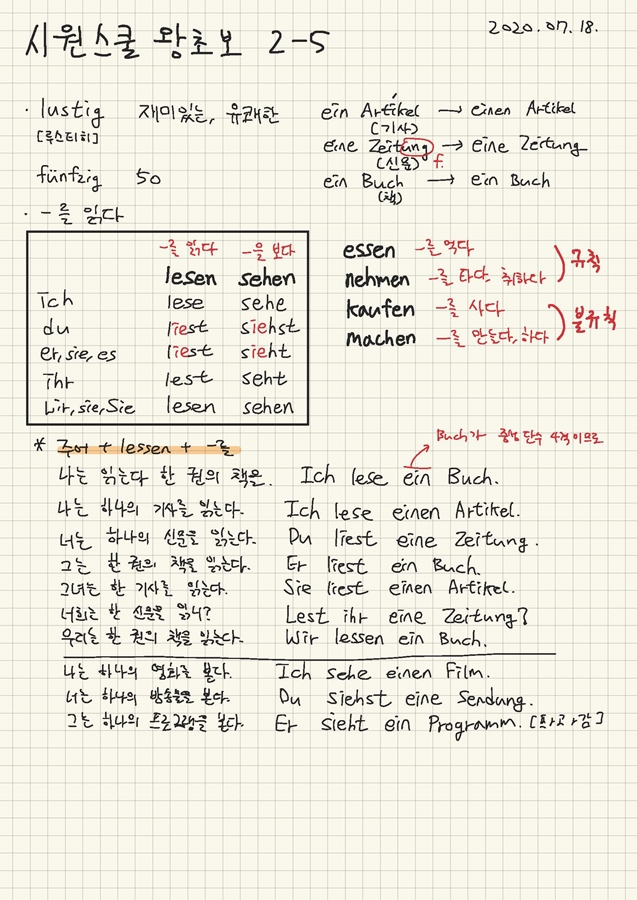 시원스쿨 왕초보 2-5
2020.07.18.
· lustig 재미있는, 유쾌한
[루스티히]
fünfzig 50
· -를 읽다
ein Artikel → einen Artikel
(기사)
eine Zeitung → eine Zeitung
(신문) f.
ein Buch → ein Buch
(책)
-를 읽다 -을 보다
lesen sehen
ich lese sehe
du liest siehst
er, sie, es liest sieht
ihr lest seht
Wir, sie, Sie lesen sehen
essen -를 먹다
nehmen -를 타다, 취하다
규칙
kaufen -를 사다
machen -를 만들다, 하다
불규칙
* 주어 + lessen + -를
Buch가 중성 단수 4격이므로
나는 읽는다 한 권의 책을. Ich lese ein Buch.
나는 하나의 기사를 읽는다. Ich lese einen Artikel.
너는 하나의 신문을 읽는다. Du liest eine Zeitung.
그는 한 권의 책을 읽는다. Er liest ein Buch.
그녀는 한 기사를 읽는다. Sie liest einen Artikel.
너희는 한 신문을 읽니? Lest ihr eine Zeitung?
우리는 한 권의 책을 읽는다. Wir lessen ein Buch.
나는 하나의 영화를 본다. Ich sehe einen Film.
너는 하나의 방송물을 본다. Du siehst eine Sendung.
그는 하나의 프로그램을 본다. Er sieht ein Programm. [프로그람]